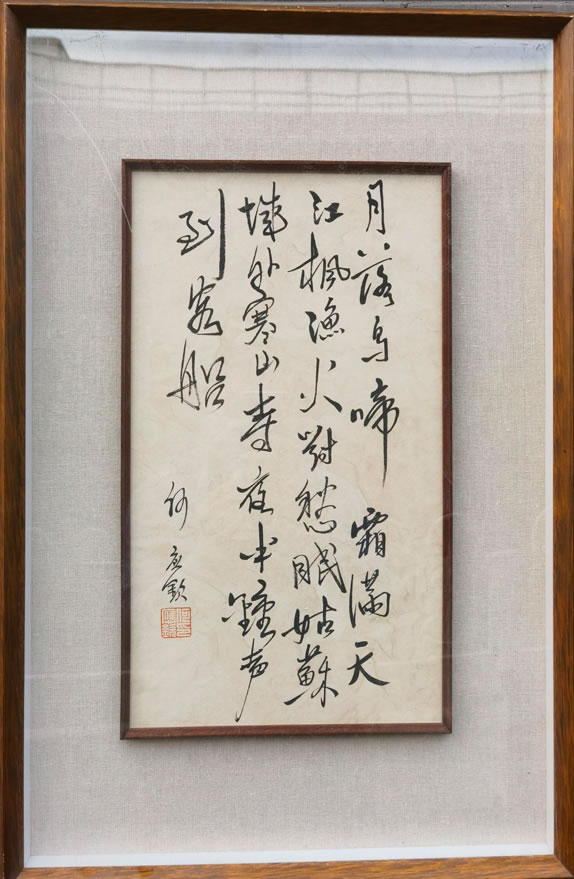 月落烏啼霜滿天
江枫漁火對愁眠姑蘇
城外寒山寺夜半鐘声
到客船
何應欽